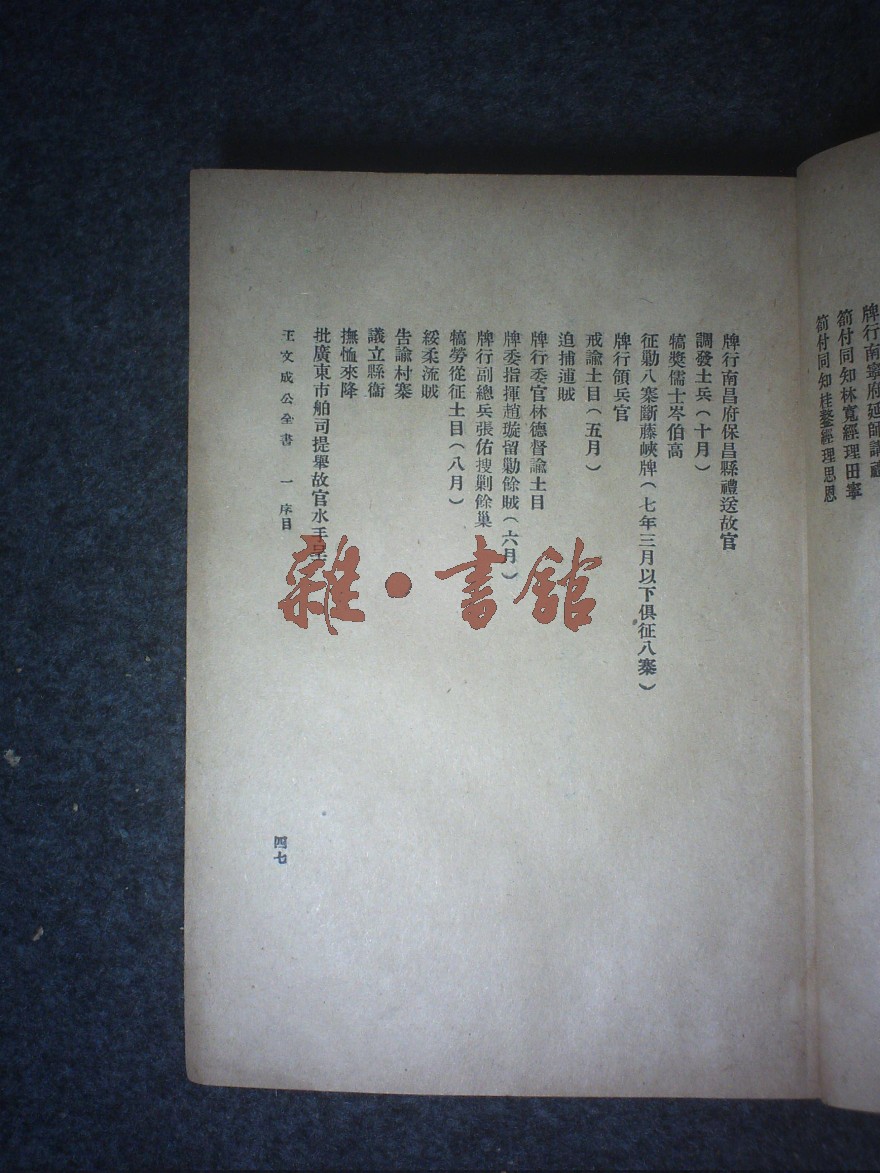 牌行南寧府延師講禮
箚付同知林寬經理田寧
箚付同知桂鏊經理思恩
牌行南昌府保昌縣禮送故官
調發土兵(十月)
犒奬儒士岑伯高
征勦八寨斷藤峽牌(七年三月以下俱征八寨)
牌行領兵官
戒諭土目(五月)
追捕逋賊
牌行委官林德督諭土目
牌委指揮趙璇留勦餘賊(六月)
牌行副總兵張佑搜剿餘巢
犒勞從征土目(八月)
綏柔流賊
告諭村寨
議立縣衞
撫恤來降
批廣東市舶司提舉故官水手呈
王文成公全書 一 序目
四七
雜·書館